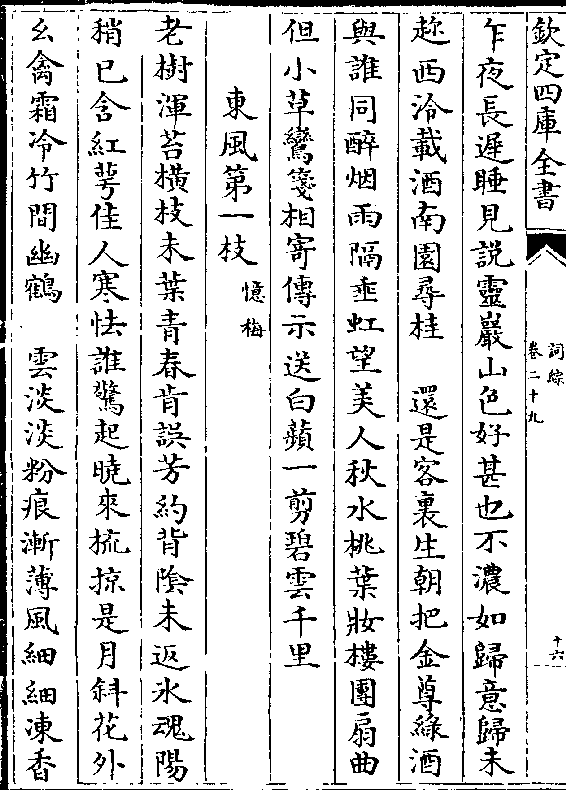 欽定四庫全書
詞綜
卷二十九
十六
乍夜長遲睡見說靈巖山色好甚也不濃如歸意歸未
趂西泠載酒南園尋桂　還是客裏生朝把金尊綠酒
與誰同醉烟雨隔垂虹望美人秋水桃葉妝樓團扇曲
但小草鸞箋相寄傳示送白蘋一剪碧雲千里
東風第一枝憶梅
老樹渾苔橫枝未葉青春肯誤芳約背陰未返氷魂陽
稍已含紅萼佳人寒怯誰驚起曉來梳掠是月斜花外
么禽霜冷竹間幽鶴　雲淡淡粉痕漸薄風細細凍香